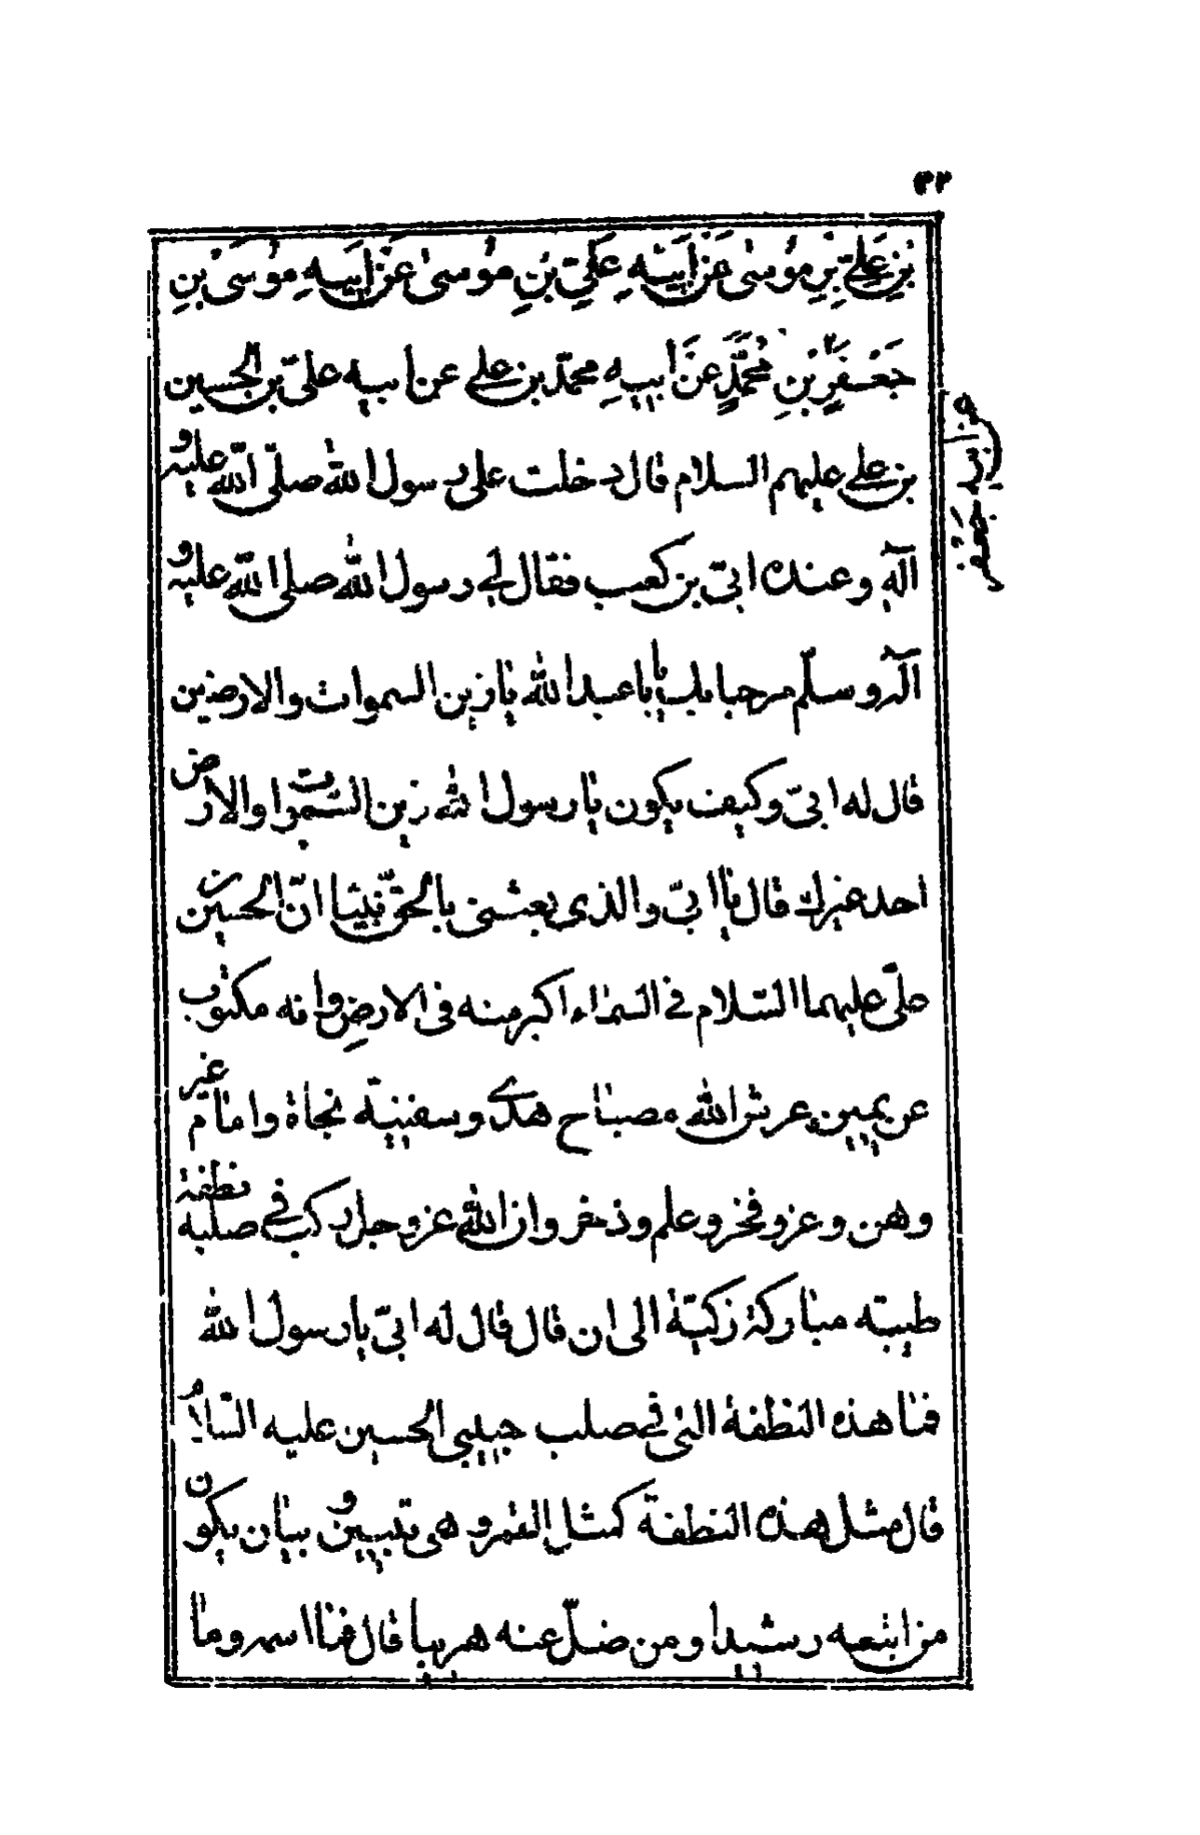 ٣٢
بن علي بن موسى عن ابيه علي بن موسى عن ابيه موسى بن
جعفر بن محمد عن ابيه محمد بن علي عن ابيه علي بن الحسين
عن ابيه جعفر
بن علي عليهم السلام قال دخلت على رسول الله صلى الله عليه و
آله وعنده ابيّ بن كعب فقال لي رسول الله صلى الله عليه و
آله وسلّم مرحبا بك يا با عبد الله يا زين السموات والارضين
قال له ابيّ وكيف يكون يا رسول الله زين السموات والارض
احد غيرك قال يا ابيّ والذي بعثني بالحق نبيّا انّ الحسين بن
علي عليهما السّلام في السماء اكبر منه في الارض وانه مكتوب
عن يمين عرش الله مصباح هدى وسفينة نجاة وامام غير
وهن وعز وفخر وعلم وذخر وان الله عز وجل ركب في صلبه نطفة
طيبة مباركة زكيّة الى ان قال قال له ابيّ يا رسول الله
فما هذه النطفة التي في صلب حبيبي الحسين عليه السّلام
قال مثل هذه النطفة كمثل القمر وهي تبيين و بيان يكون
من اتبعه رشيدا ومن ضلّ عنه هويا قال فما اسمه وما